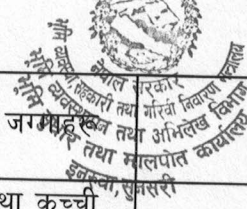 नेपाल सरकार
भूमि व्यवस्था, सहकारी तथा गरिवी निवारण मन्त्रालय
भूमि व्यवस्थापन तथा अभिलेख विभाग
भूमि सुधार तथा मालपोत कार्यालय
इनरुवा, सुनसरी
जग्गाहरू
था कच्ची